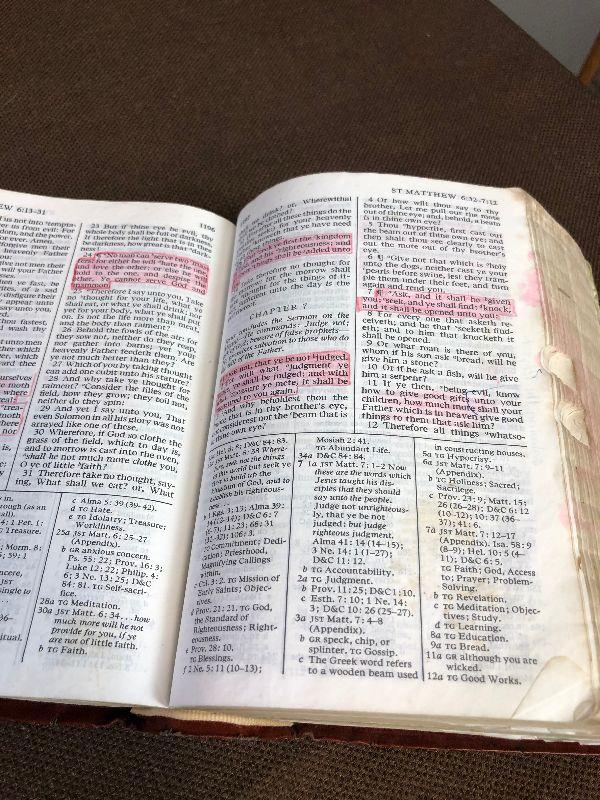 EW 6:13–31
1196
us not into temp
er us from evil: For
dom, and the power,
ever. Amen.
forgive men their
r heavenly Father
23 But if thine eye be evil, thy
whole body shall be full of darkness.
If therefore the light that is in thee
be darkness, how great is that dark
ness!
24 No man can serve two
for either he will hate the one,
and love the other; or else he will
hold to the one, and despise the
other. Ye cannot serve God and
mammon.
Therefore I say unto you, Take
no thought for your life, what ye
shall eat, or what ye shall drink; nor
yet for your body, what ye shall put
on. Is not the life more than meat,
and the body than raiment?
26 Behold the fowls of the air: for
they sow not, neither do they reap,
nor gather into barns; yet your
heavenly Father feedeth them. Are
ye not much better than they?
27 Which of you by taking thought
can add one cubit unto his stature?
28 And why take ye thought for
raiment? Consider the lilies of the
field, how they grow; they toil not,
neither do they spin:
29 And yet I say unto you, That
even Solomon in all his glory was not
arrayed like one of these.
30 Wherefore, if God so clothe the
grass of the field, which to day is,
and to morrow is cast into the oven,
shall he not much more clothe you,
O ye of little faith?
31 Therefore take no thought, say-
ing, What shall we eat? or, What
c Alma 5:39 (39–42).
d TG Hate.
e TG Idolatry; Treasure;
Worldliness.
25a JST Matt. 6:25–27
(Appendix).
b GR anxious concern.
Ps. 55:22; Prov. 16:3;
Luke 12:22; Philip. 4:
6; 3 Ne. 13:25; D&C
84:81. TG Self-sacri-
fice.
28a TG Meditation.
30a JST Matt. 6:34 . . . how
much more will he not
provide for you, if ye
are not of little faith.
b TG Faith.
ST MATTHEW 6:32–7:12
Wherewithal
shall we be clothed?
these things do the
your heavenly
that ye have need
seek ye first the kingdom
righteousness; and
things shall be added unto
therefore no thought for
for the morrow shall
for the things of it-
unto the day is the
CHAPTER 7
concludes the Sermon on the
commands: Judge not;
beware of false prophets;
salvation to those who do
of the Father.
not, that ye be not judged.
what judgment ye
ye shall be judged: and with
measure ye mete, it shall be
to you again.
why beholdest thou the
that is in thy brother's eye,
considerest not the beam that is
thine own eye?
4 Or how wilt thou say to thy
brother, Let me pull out the mote
out of thine eye; and, behold, a beam
is in thine own eye?
5 Thou hypocrite, first cast out
the beam out of thine own eye; and
then shalt thou see clearly to cast
out the mote out of thy brother's
eye.
6 ¶ Give not that which is holy
unto the dogs, neither cast ye your
pearls before swine, lest they tram-
ple them under their feet, and turn
again and rend you.
7 ¶ Ask, and it shall be given
you; seek, and ye shall find; knock,
and it shall be opened unto you:
8 For every one that asketh re-
ceiveth; and he that seeketh find-
eth; and to him that knocketh it
shall be opened.
9 Or what man is there of you,
whom if his son ask bread, will he
give him a stone?
10 Or if he ask a fish, will he give
him a serpent?
11 If ye then, being evil, know
how to give good gifts unto your
children, how much more shall your
Father which is in heaven give good
things to them that ask him?
12 Therefore all things whatso-
D&C 84:83.
Where-
not the things
world but seek ye
to build up the
kingdom of God, and to
establish his righteous-
ness
Kgs. 3:13; Alma 39:
D&C 6:7
11:23; 68:31
106:3.
Commitment; Dedi-
cation; Priesthood,
Magnifying Callings
within.
TG Mission of
Early Saints; Objec-
tives.
Prov. 21:21. TG God,
the Standard of
Righteousness; Right-
eousness.
Prov. 28:10.
TG Blessings.
f 2 Ne. 5:11 (10–13);
Mosiah 2:41.
TG Abundant Life.
34a D&C 84:84.
7 1a JST Matt. 7:1–2 Now
these are the words which
Jesus taught his dis-
ciples that they should
say unto the people.
Judge not unrighteous-
ly, that ye be not
judged; but judge
righteous judgment.
Alma 41:14 (14–15);
3 Ne. 14:1 (1–27);
D&C 11:12.
b TG Accountability.
2a TG Judgment.
b Prov. 11:25; D&C 1:10.
c Esth. 7:10; 1 Ne. 14:
3; D&C 10:26 (25–27).
3a JST Matt. 7:4–8
(Appendix).
b GR speck, chip, or
splinter. TG Gossip.
c The Greek word refers
to a wooden beam used
in constructing houses.
5a TG Hypocrisy.
6a JST Matt. 7:9–11
(Appendix).
b TG Holiness; Sacred;
Sacrilege.
c Prov. 23:9; Matt. 15:
26 (26–28); D&C 6:12
(10–12); 10:37 (36–
37); 41:6.
7a JST Matt. 7:12–17
(Appendix). Isa. 58:9
(8–9); Hel. 10:5 (4–
11); D&C 6:5.
TG Faith; God, Access
to; Prayer; Problem-
Solving.
b TG Revelation.
c TG Meditation; Objec-
tives; Study.
d TG Learning.
8a TG Education.
9a TG Bread.
11a GR although you are
wicked.
12a TG Good Works.